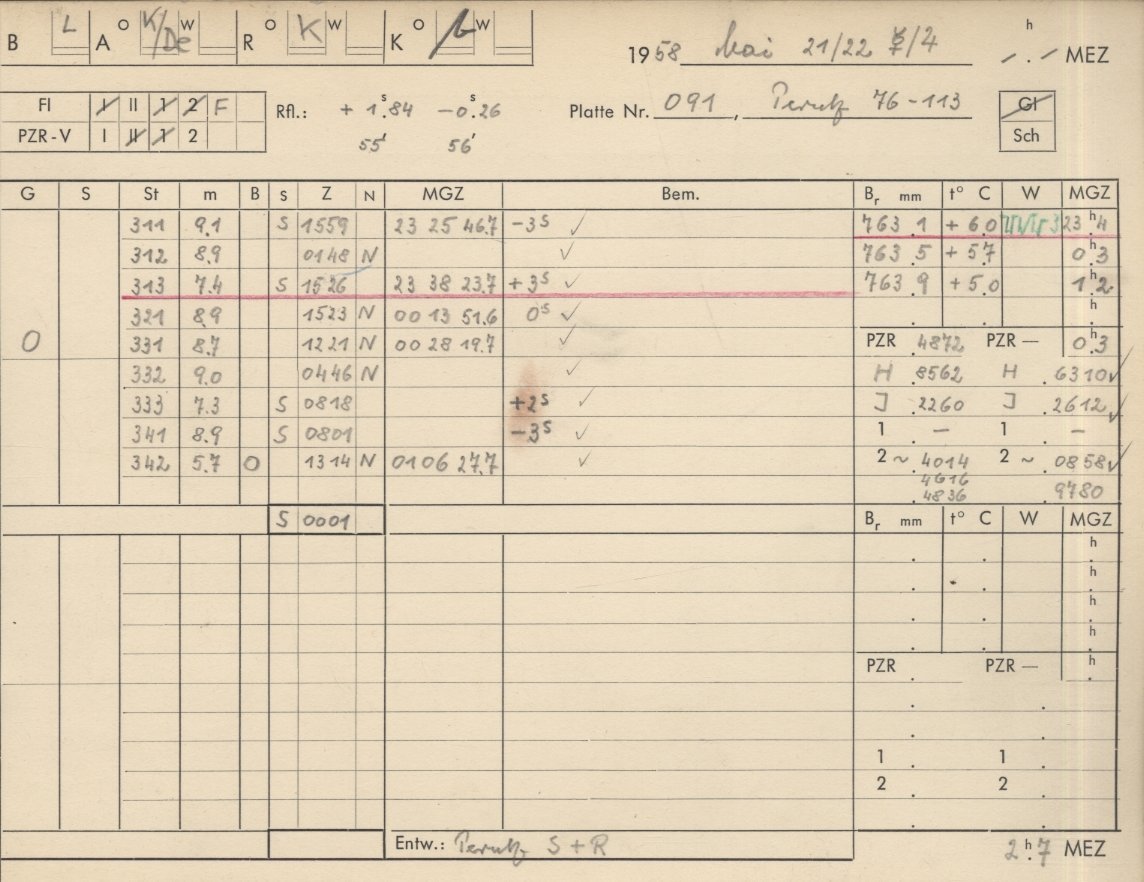 B L A O K/De W R O K W K O L W
1958 Mai 21/22 ☿/4 h /./ MEZ
FI I II 1 2 F
PZR-V I II 1 2
Rfl.: + 1ˢ.84 −0ˢ.26
55' 56'
Platte Nr. 091, Perutz 76-113
GI
Sch
G S St m B S Z N MGZ Bem. Br mm t° C W MGZ
311 9.1 S 1559 23 25 46.7 −3ˢ ✓ 763.1 +6.0 23ʰ.4
312 8.9 0148 N ✓ 763.5 +5.7 0ʰ.3
313 7.4 S 1526 23 38 23.7 +3ˢ ✓ 763.9 +5.0 1ʰ.2
321 8.9 1523 N 00 13 51.6 0ˢ ✓ . . h .
O 331 8.7 1221 N 00 28 19.7 ✓ PZR .4872 PZR — 0ʰ.3
332 9.0 0446 N ✓ H .8562 H .6310 ✓
333 7.3 S 0818 +2ˢ ✓ J .2260 J .2612 ✓
341 8.9 S 0801 −3ˢ ✓ 1 . — 1 . —
342 5.7 O 1314 N 01 06 27.7 ✓ 2 ~ 4014 2 ~ .0858 ✓
.4616
.4836 .9780
S 0001 Br mm t° C W MGZ
. . h .
. . h .
. . h .
. . h .
PZR . PZR — h .
1 . 1 .
2 . 2 .
Entw.: Perutz S + R 2ʰ.7 MEZ